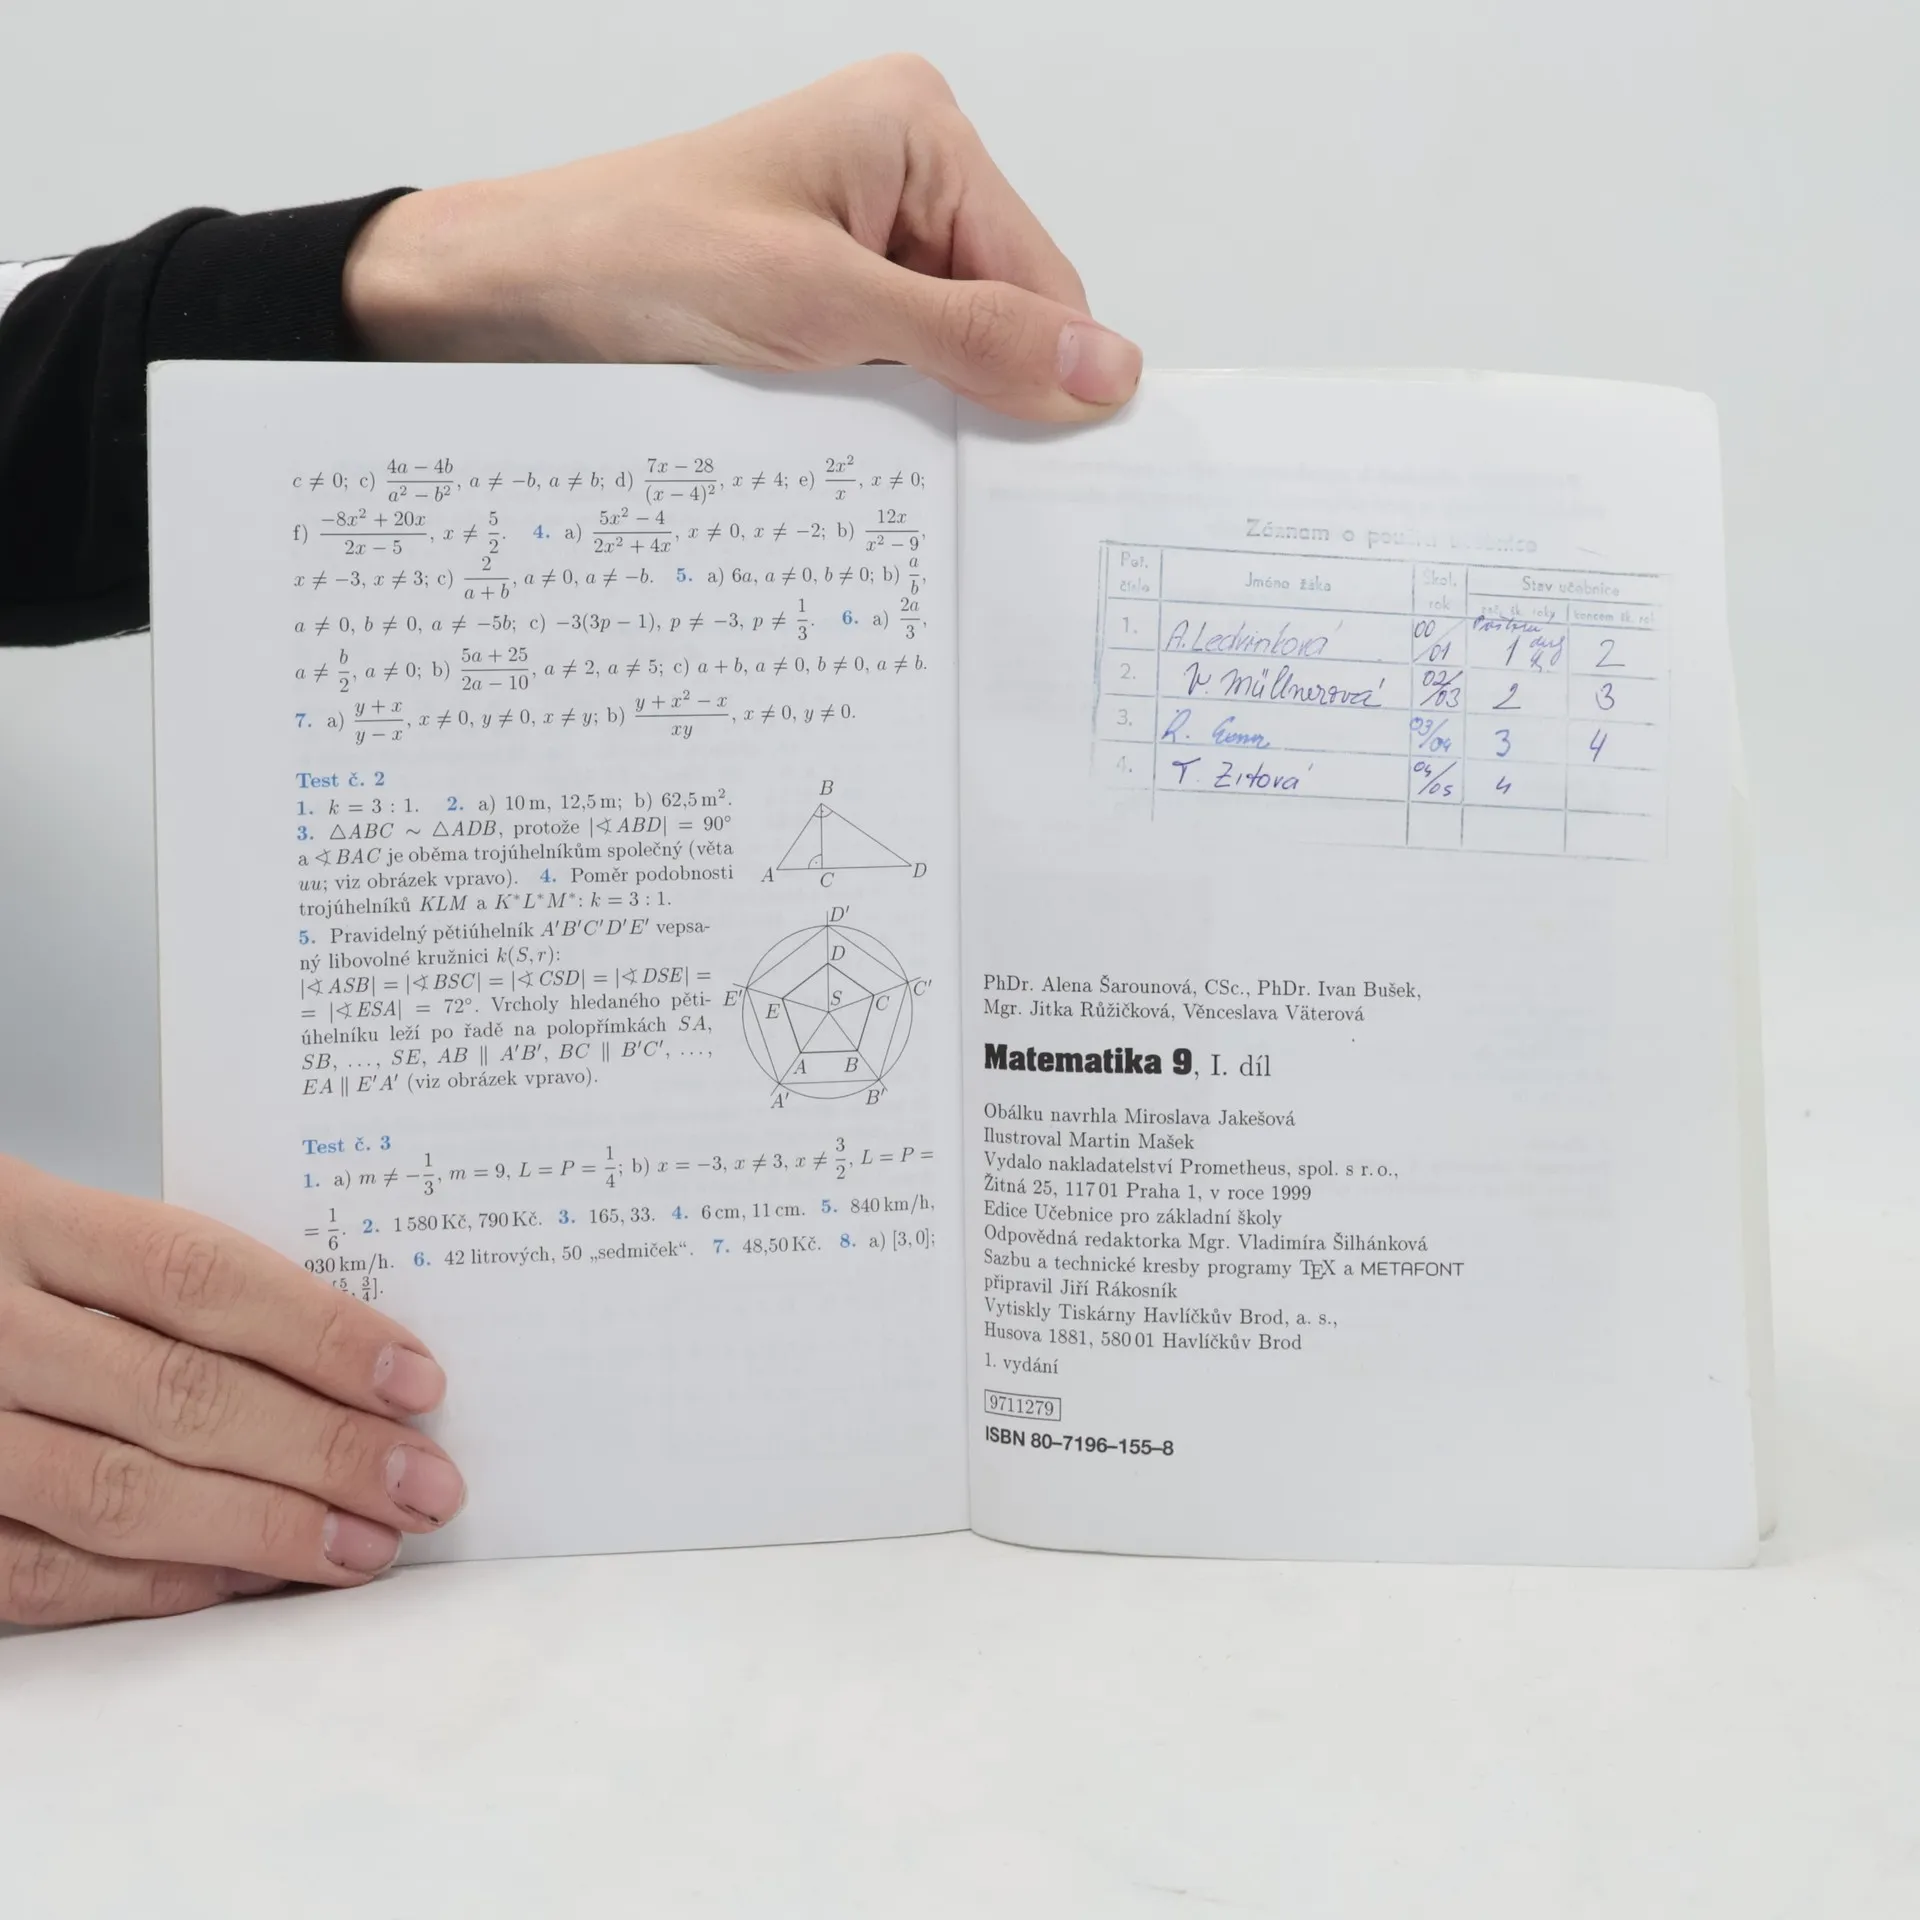 c ≠ 0; c) (4a − 4b)/(a² − b²), a ≠ −b, a ≠ b; d) (7x − 28)/(x − 4)², x ≠ 4; e) 2x²/x, x ≠ 0;
f) (−8x² + 20x)/(2x − 5), x ≠ 5/2. 4. a) (5x² − 4)/(2x² + 4x), x ≠ 0, x ≠ −2; b) 12x/(x² − 9),
x ≠ −3, x ≠ 3; c) 2/(a + b), a ≠ 0, a ≠ −b. 5. a) 6a, a ≠ 0, b ≠ 0; b) a/b,
a ≠ 0, b ≠ 0, a ≠ −5b; c) −3(3p − 1), p ≠ −3, p ≠ 1/3. 6. a) 2a/3,
a ≠ b/2, a ≠ 0; b) (5a + 25)/(2a − 10), a ≠ 2, a ≠ 5; c) a + b, a ≠ 0, b ≠ 0, a ≠ b.
7. a) (y + x)/(y − x), x ≠ 0, y ≠ 0, x ≠ y; b) (y + x² − x)/xy, x ≠ 0, y ≠ 0.
Test č. 2
1. k = 3 : 1. 2. a) 10 m, 12,5 m; b) 62,5 m².
3. △ABC ∼ △ADB, protože |∢ABD| = 90°
a ∢BAC je oběma trojúhelníkům společný (věta
uu; viz obrázek vpravo). 4. Poměr podobnosti
trojúhelníků KLM a K*L*M*: k = 3 : 1.
B
A C D
5. Pravidelný pětiúhelník A′B′C′D′E′ vepsa-
ný libovolné kružnici k(S, r):
|∢ASB| = |∢BSC| = |∢CSD| = |∢DSE| =
= |∢ESA| = 72°. Vrcholy hledaného pěti-
úhelníku leží po řadě na polopřímkách SA,
SB, ..., SE, AB ∥ A′B′, BC ∥ B′C′, ...,
EA ∥ E′A′ (viz obrázek vpravo).
D′
D
E′ E S C C′
A B
A′ B′
Test č. 3
1. a) m ≠ −1/3, m = 9, L = P = 1/4; b) x = −3, x ≠ 3, x ≠ 3/2, L = P =
= 1/6. 2. 1 580 Kč, 790 Kč. 3. 165, 33. 4. 6 cm, 11 cm. 5. 840 km/h,
930 km/h. 6. 42 litrových, 50 „sedmiček“. 7. 48,50 Kč. 8. a) [3, 0];
3/4].
Záznam o použití učebnice
Poř. číslo Jméno žáka Škol. rok Stav učebnice
poč. šk. roku koncem šk. rok
1. A. Ledvinková 00/01 1 2
2. V. Müllnerová 02/03 2 3
3. R. 03/04 3 4
4. T. Zítová 04/05 4
PhDr. Alena Šarounová, CSc., PhDr. Ivan Bušek,
Mgr. Jitka Růžičková, Věnceslava Väterová
Matematika 9, I. díl
Obálku navrhla Miroslava Jakešová
Ilustroval Martin Mašek
Vydalo nakladatelství Prometheus, spol. s r. o.,
Žitná 25, 117 01 Praha 1, v roce 1999
Edice Učebnice pro základní školy
Odpovědná redaktorka Mgr. Vladimíra Šilhánková
Sazbu a technické kresby programy TEX a METAFONT
připravil Jiří Rákosník
Vytiskly Tiskárny Havlíčkův Brod, a. s.,
Husova 1881, 580 01 Havlíčkův Brod
1. vydání
9711279
ISBN 80–7196–155–8